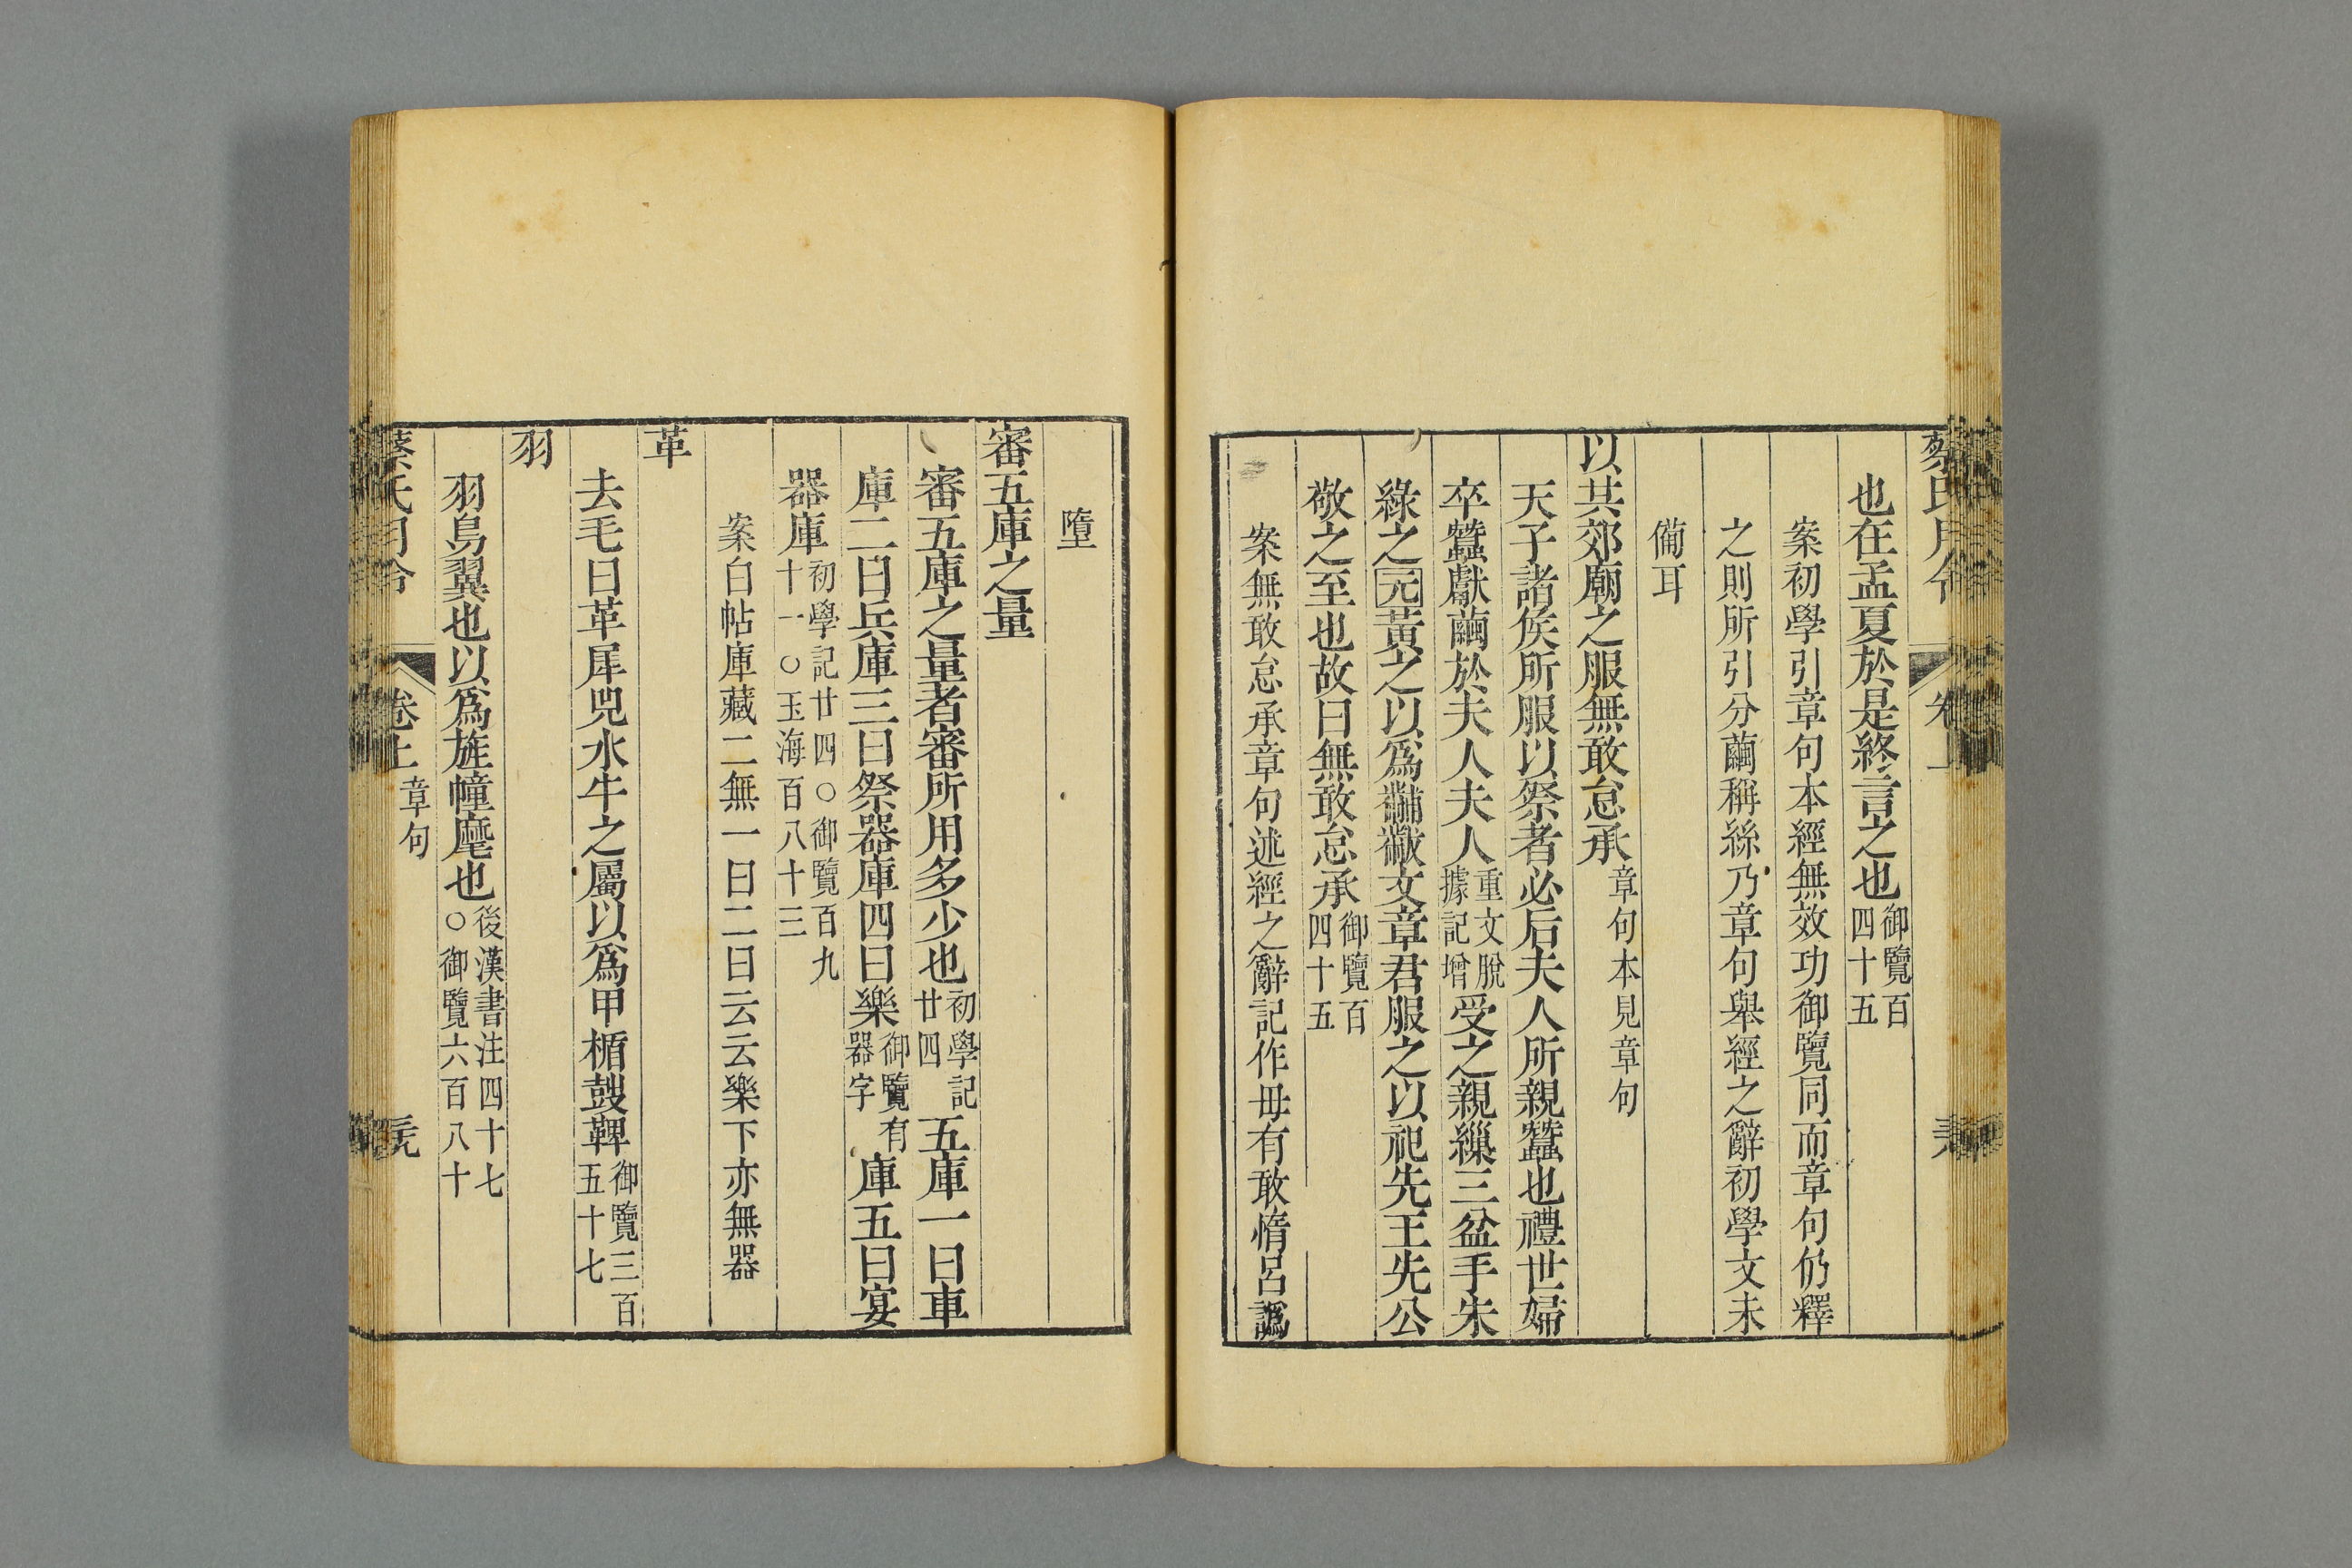 蔡氏月令
卷上
也在孟夏於是終言之也御覽百四十五
案初學引章句本經無效功御覽同而章句仍釋
之則所引分繭稱絲乃章句舉經之辭初學文未
備耳
以共郊廟之服無敢怠承章句本見章句
天子諸侯所服以祭者必后夫人所親蠶也禮世婦
卒蠶獻繭於夫人夫人重文脫據記增受之親繅三盆手朱
綠之元黃之以爲黼黻文章君服之以祀先王先公
敬之至也故曰無敢怠承御覽百四十五
案無敢怠承章句述經之辭記作毋有敢惰呂譌
墮
審五庫之量
審五庫之量者審所用多少也初學記廿四五庫一曰車
庫二曰兵庫三曰祭器庫四曰樂御覽有器字庫五曰宴
器庫初學記廿四○御覽百九十一○玉海百八十三
案白帖庫藏二無一曰二曰云云樂下亦無器
革
去毛曰革犀兕水牛之屬以爲甲楯鼓鞞御覽三百五十七
羽
羽鳥翼也以爲旌幢麾也後漢書注四十七○御覽六百八十
蔡氏月令
卷上
章句